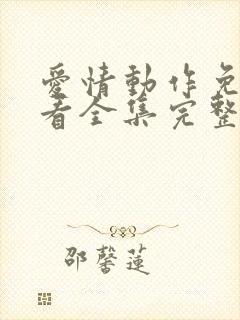 愛情動作免
看全集完整
邵馨蓮